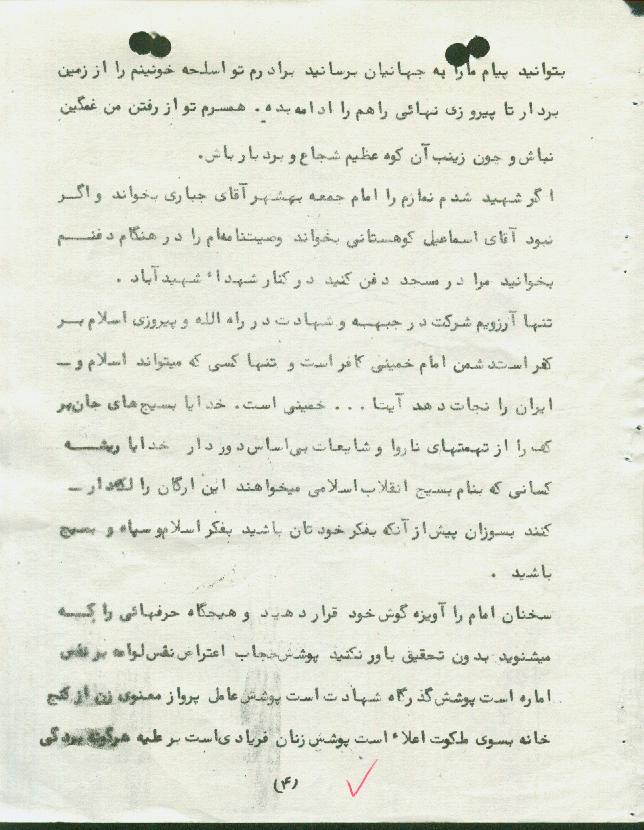 بتوانید پیام ما را به جهانیان برسانید برادرم تو اسلحه خونینم را از زمین
بردار تا پیروزی نهائی راهم را ادامه بده. همسرم تو از رفتن من غمگین
نباش و چون زینب آن کوه عظیم شجاع و بردبار باش.
اگر شهید شدم نمازم را امام جمعه بهشهر آقای جباری بخواند و اگر
نبود آقای اسماعیل کوهستانی بخواند وصیتنامه‌ام را در هنگام دفنم
بخوانید مرا در مسجد دفن کنید در کنار شهداء شهیدآباد .
تنها آرزویم شرکت در جبهه و شهادت در راه الله و پیروزی اسلام بر
کفر است دشمن امام خمینی کافر است و تنها کسی که میتواند اسلام و ـ
ایران را نجات دهد آیتا ... خمینی است. خدایا بسیج‌های جان‌بر
کف را از تهمتهای ناروا و شایعات بی‌اساس دور دار خدایا ریشه
کسانی که بنام بسیج انقلاب اسلامی میخواهند این ارگان را لکه‌دار ـ
کنند بسوزان پیش از آنکه بفکر خودتان باشید بفکر اسلام و سپاه و بسیج
باشید .
سخنان امام را آویزه گوش خود قرار دهید و هیچگاه حرفهائی را که
میشنوید بدون تحقیق باور نکنید پوشش حجاب اعتراض نفس لوامه بر نفس
اماره است پوشش گذرگاه شهادت است پوشش عامل پرواز معنوی زن از کنج
خانه بسوی ملکوت اعلاء است پوشش زنان فریادی است بر علیه هرگونه بردگی
(۴)